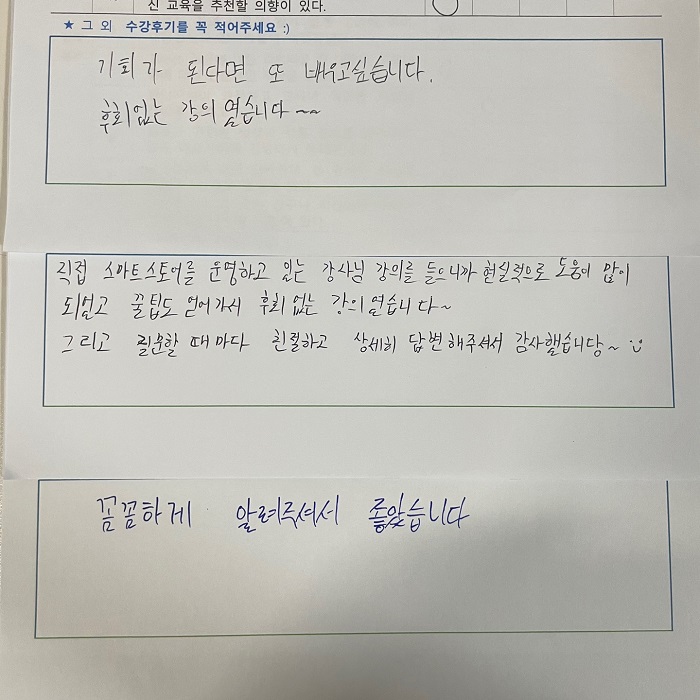 신 교육을 추천할 의향이 있다.
★ 그 외 수강후기를 꼭 적어주세요 :)
기회가 된다면 또 배우고싶습니다.
후회없는 강의였습니다~~
직접 스마트스토어를 운영하고 있는 강사님 강의를 들으니까 현실적으로 도움이 많이
되었고 꿀팁도 얻어가서 후회 없는 강의였습니다~
그리고 질문할 때마다 친절하고 상세히 답변해주셔서 감사했습니당~ :)
꼼꼼하게 알려주셔서 좋았습니다